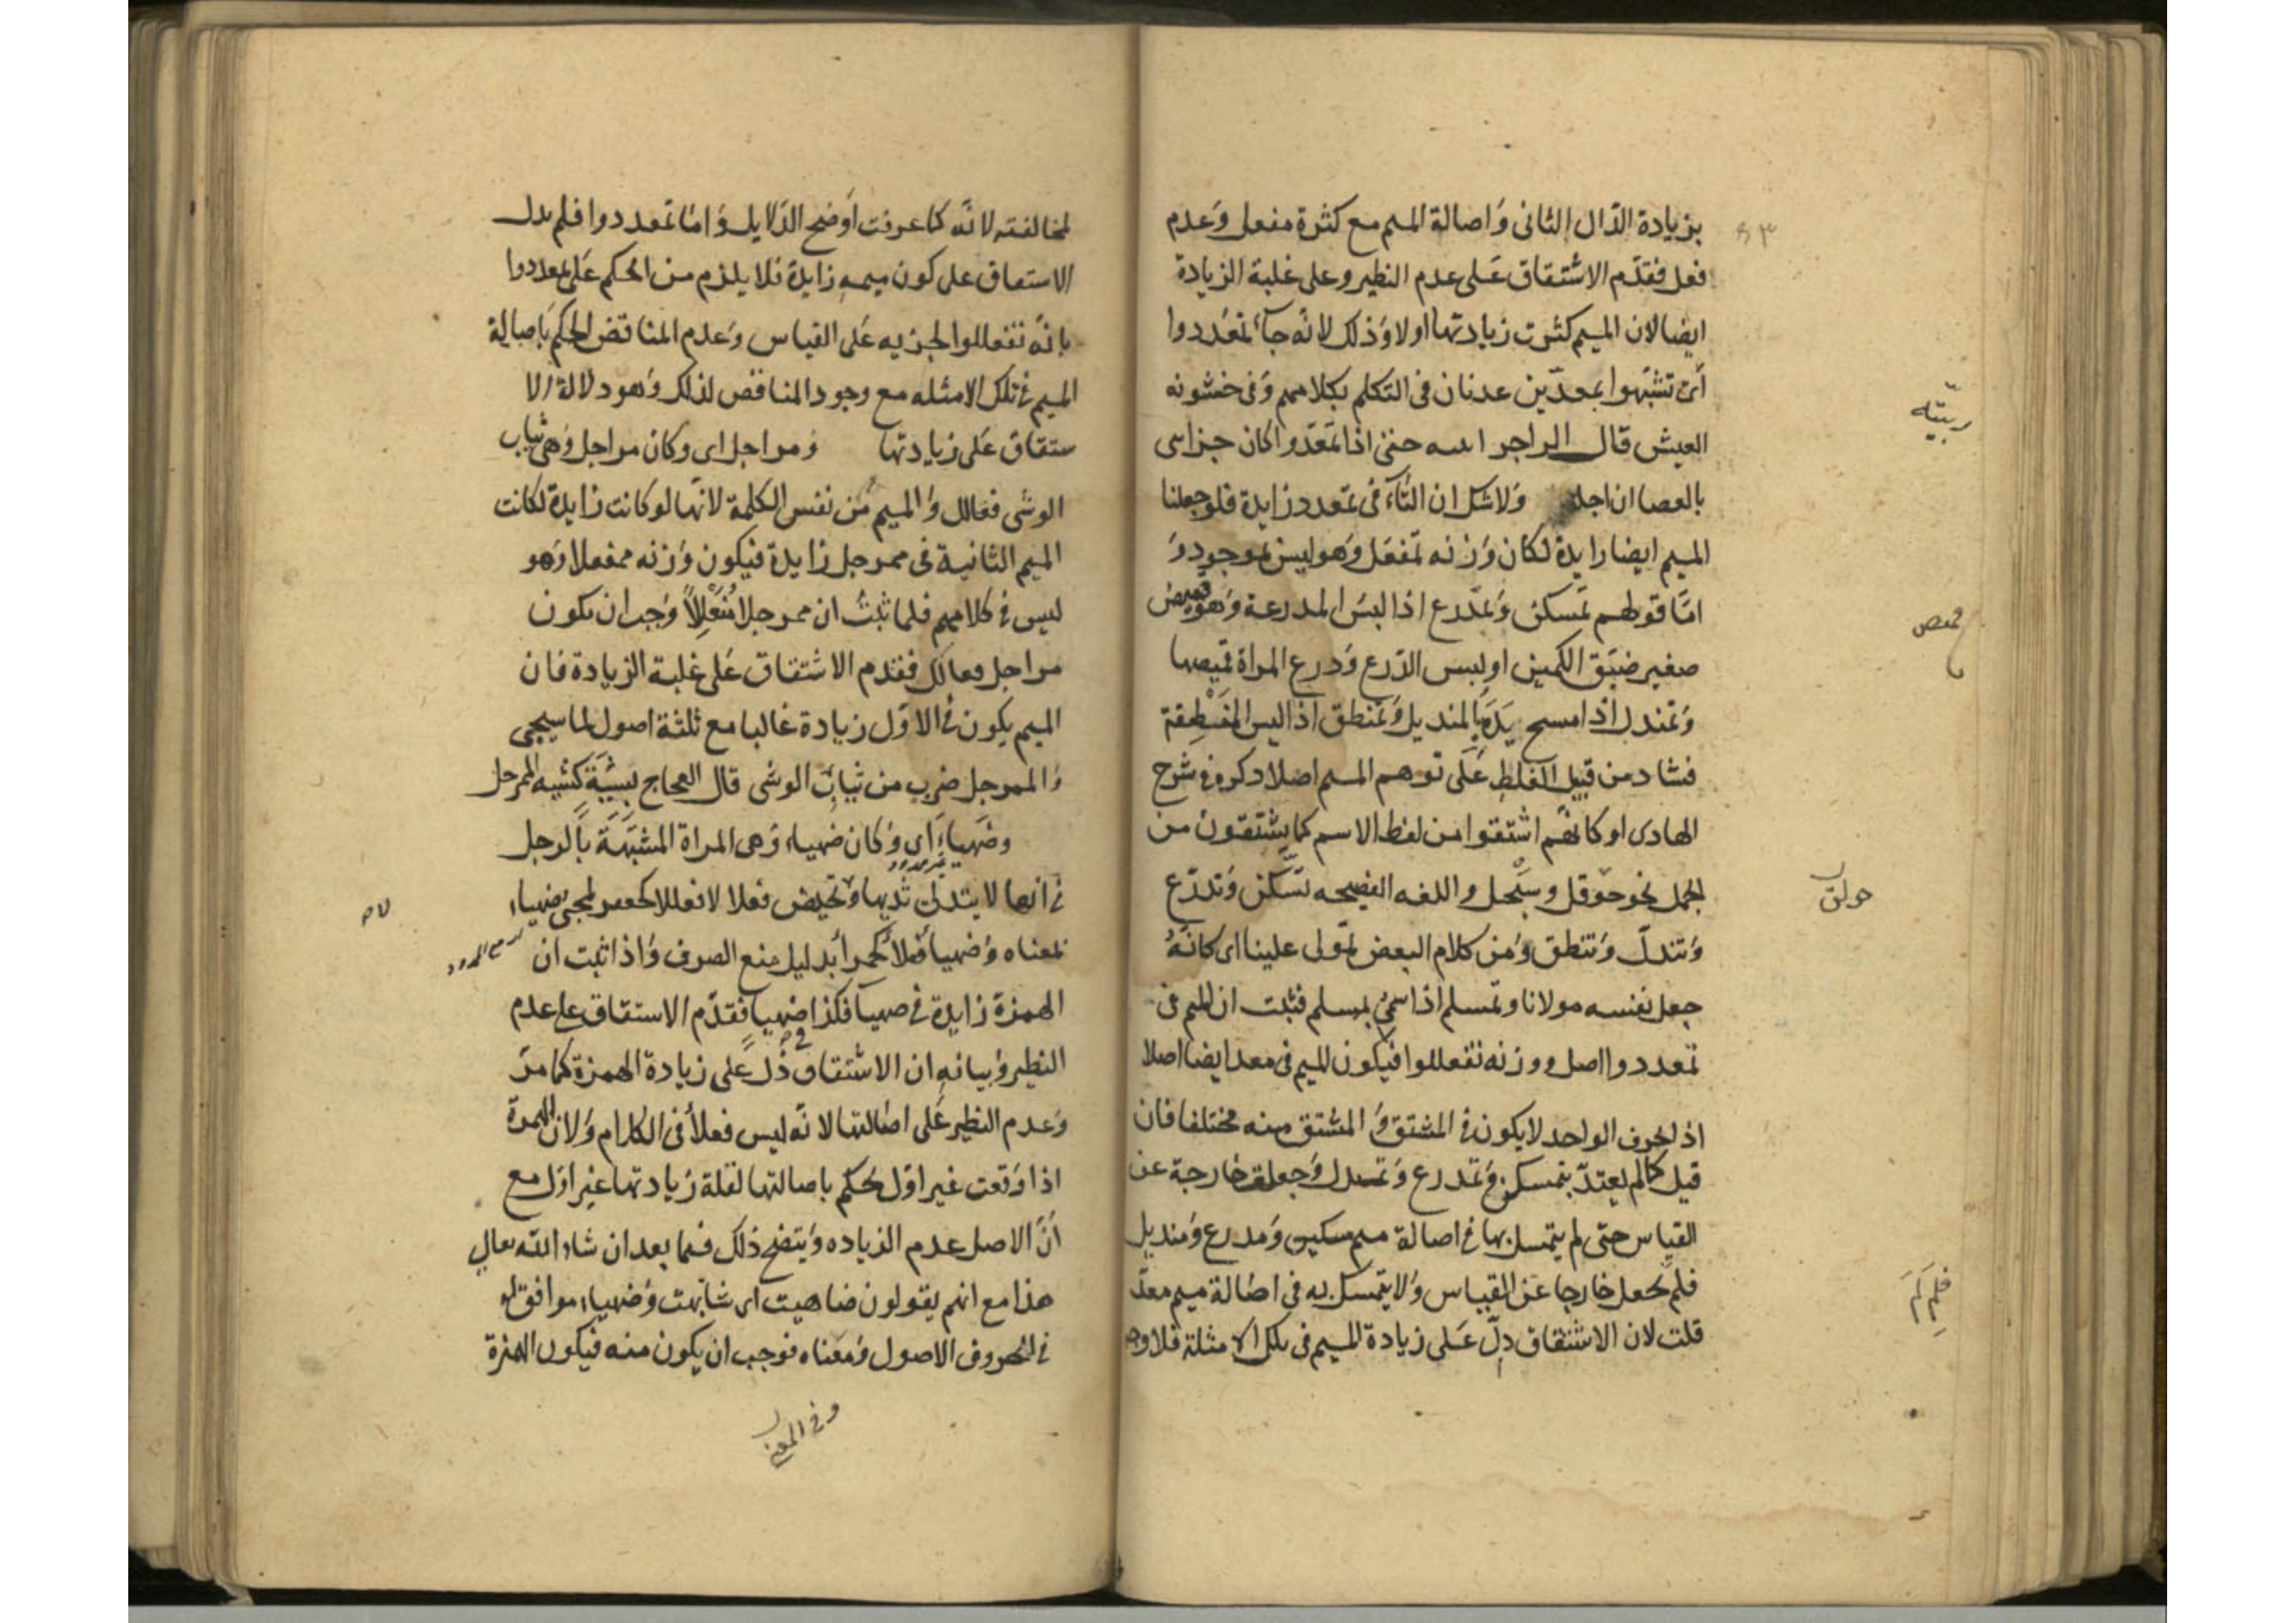 بزيادة الدّال الثانى وَاصالة الميم مع كثرة مفعل وَعدم
فعل فقدّم الاشتقاق عَلى عدم النظير وعلى غلبة الزيادة
ايضا لان الميم كثرت زيادتها اولا وَذلك لانّه جآ تمعَددوا
أى تشبّهوا بمعدّ بن عدنان فى التكلم بكلامهم وَفى خشونه
العيش قال الراجز حتى اذا تمَعَددوا كان جزاى
بالعصا ان اجلد وَلاشك ان التّآء فى تمَعدد زايدة فلوجعلنا
الميم ايضا زايدة لكان وَزنه تمفعَل وَهو ليس بموجود وَ
امّا قولهم تمَسكن وَتمدّرع اذا لبسَ المدرعة وَهو قميص
صغير ضيّق الكمين او لبس الدّرع وَدرع المراة قميصها
وَتمندل اذا مسح يَدَه بالمنديل وَتمنطق اذا لبس المنطقة
فشاد من قبيل الغلط عَلى توهم الميم اصلا دكره فى شرح
الهادى او كانهّم اشتقوا من لفظ الاسم كما يشتقون من
الجمل نحو حَوقل وسَبحل واللغه الفصيحه تسَّكن وَتدرّع
وَتندلّ وَتنطق وَمن كلام البعض تمولى علينا اى كانّهُ
جعل نفسه مولانا وتمسلم اذا سمّى بمسلم فثبت ان الميم فى
تمعددوا اصل ووزنه تفعللوا فيكون الميم فى معد ايضا اصلا
اذ الحرف الواحد لايكون فى المشتق وَالمشتق منه مختلفا فان
قيل كما لم يعتدّ بتمسكن وَتمدرع وَتمندل وَجعلت خارجة عن
القياس حتى لم يتمسك بها فى اصالة ميم مسكين وَمدرع وَمنديل
فلم تجعل خارجا عَن القياس وَلا يتمسك به فى اصَالة ميم معدّ
قلت لان الاشتقاق دلّ عَلى زيادة الميم فى تلك الامثلة فلا وجه
حولق
لمخالفته لانّه كما عرفت اَوضح الدّلايل وَامّا تمعددوا فلم يدل
الاستقاق على كون ميمه زايدة فلا يلزم من الحكم عَلى تمعددوا
بانّه تفعللوا لجزيه عَلى القياس وَعدم المناقض الحكم بَاصالة
الميم فى تلك الامثله مع وجود المناقض لذلك وَهو دلالة الا
ستقاق عَلى زيادتها وَمراجل اى وكان مراجل وَهى ثياب
الوشى فعالل وَالميم مَن نفس الكلمة لانّها لو كانت زايدة لكانت
الميم الثانية فى ممرجل زايدة فيكون وَزنه ممفعلا وَهو
ليس فى كلامهم فلما ثبتُ ان ممرجلا مُفَعْلَلاً وَجب ان يكون
مراجل فعالل فقدم الاشتقاق عَلى غلبة الزيادة فان
الميم يكون فى الاوّل زيادة غالبا مع ثلثة اصول لما سيجى
وَالممرجل ضرب من ثيابِ الوشى قال العجاج بِشِيَةٍ كشيه الممرجل
وضَهيَاءَ اى وَكان ضهياء وَهى المراة المشبَهَة بَالرجل
فى انها لا يتدلى ثديها وَتحيض فعلا لا فعللا كجعفر لمجى ضهياء
بمعناه وَضهيا فعلا كحمرا بدليل منع الصرف وَاذا ثبت ان
الهمزة زايدة فى ضهيا فكذا ضهيا فقدّم الاستقاق على عدم
النظير وَبيانه ان الاشتقاق دَلّ عَلى زيادة الهمزة كما مرّ
وَعدم النظير عَلى اصَالتها لانّه ليس فعلأ فى الكلام وَلان الهمزة
اذا وَقعت غير اوّل يحكم باصالتها لقلة زيادتها غير اوّل مع
اَنّ الاصل عدم الزياده وَيتضح ذلك فيما بعد ان شاء اللّه تعالى
هذا مع انهم يقولون ضاهيت اى شابَهت وَضهياء موافق له
فى الحروف الاصول وَمَعناه فوجب ان يكون منه فيكون الهمزة